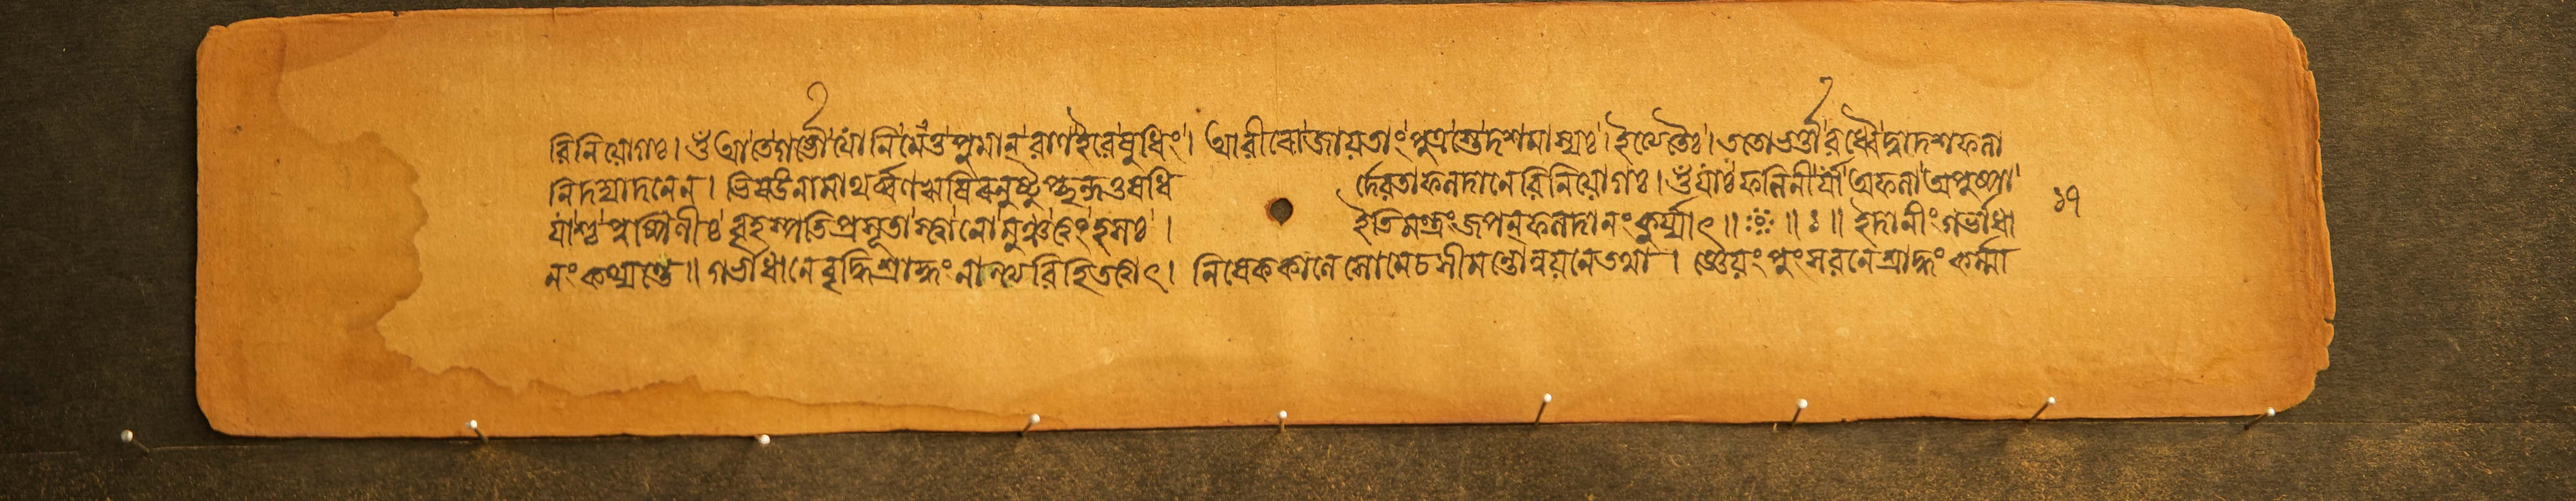 ৱিনিয়োগঃ। ওঁ আ তে গর্ভো যোনিমেতু পুমান্ বাণ ইৱেষুধিং। আ ৱীৰো জায়তাং পুত্রস্তে দশমাস্যঃ। ইত্যেতৈঃ। ততো ভর্ত্তৃৰ দ্বাদশফলা
নি দদ্যাদনেন। ভিষঙ্নামাথর্ব্বণঋষিৰনুষ্টুপ্ছন্দ ওষধি র্দেৱতা ফলদানে ৱিনিয়োগঃ। ওঁ যাঃ ফলিনীর্যা অফলা অপুষ্পা
যাশ্চ পুষ্পিণীঃ বৃহস্পতিপ্রসূতাস্তা নো মুঞ্চন্ত্বংহসঃ। ইতি মন্ত্রং জপন্ ফলদানং কুর্য্যাৎ॥ ॥ ঃ ॥ ইদানীং গর্ভাধা
নং কথ্যতে॥ গর্ভাধানে বৃদ্ধিশ্রাদ্ধং ৱিহিতৱেৎ। নিষেককালে সোমে চ সীমন্তোন্নয়নে তথা। জ্ঞেয়ং পুংসৱনে শ্রাদ্ধং কর্ম্মা
১৭